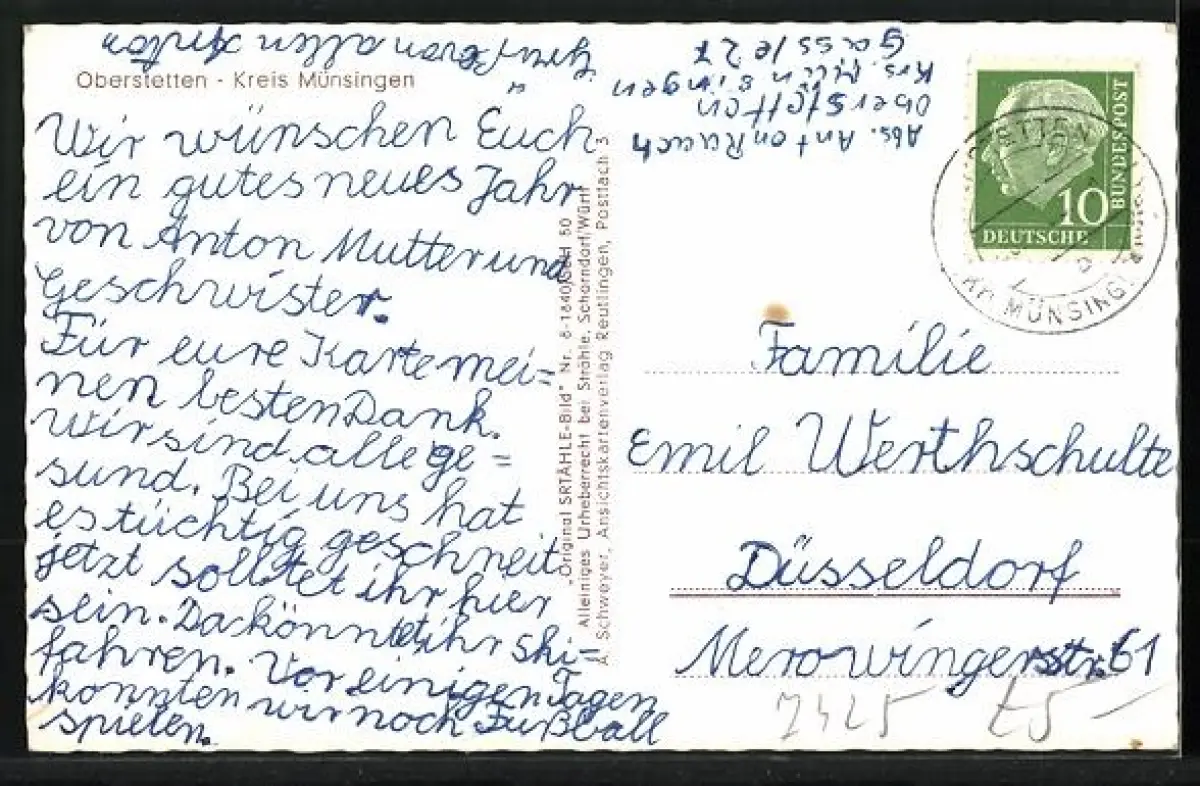 Oberstetten - Kreis Münsingen
Wir wünschen Euch
ein gutes neues Jahr
von Anton Mutter und
Geschwister.
Für eure Karte mei=
nen besten Dank.
Wir sind alle ge=
sund. Bei uns hat
es tüchtig geschneit
jetzt solltet ihr hier
sein. Da könntet ihr ski-
fahren. Vor einigen Tagen
konnten wir noch Fußball
spielen.
von allen
Abs. Anton Rauch
Oberstetten
Krs. Münsingen
Gassle 27
"Original SRTÄHLE-Bild" Nr. 8-1840/GEH 50
Alleiniges Urheberrecht bei Strähle, Schorndorf/Württ
A. Schweyer, Ansichtskartenverlag Reutlingen, Postfach 3
10
DEUTSCHE
BUNDESPOST
MÜNSINGEN
Familie
Emil Werthschulte
Düsseldorf
Merowingerstr. 61
7425